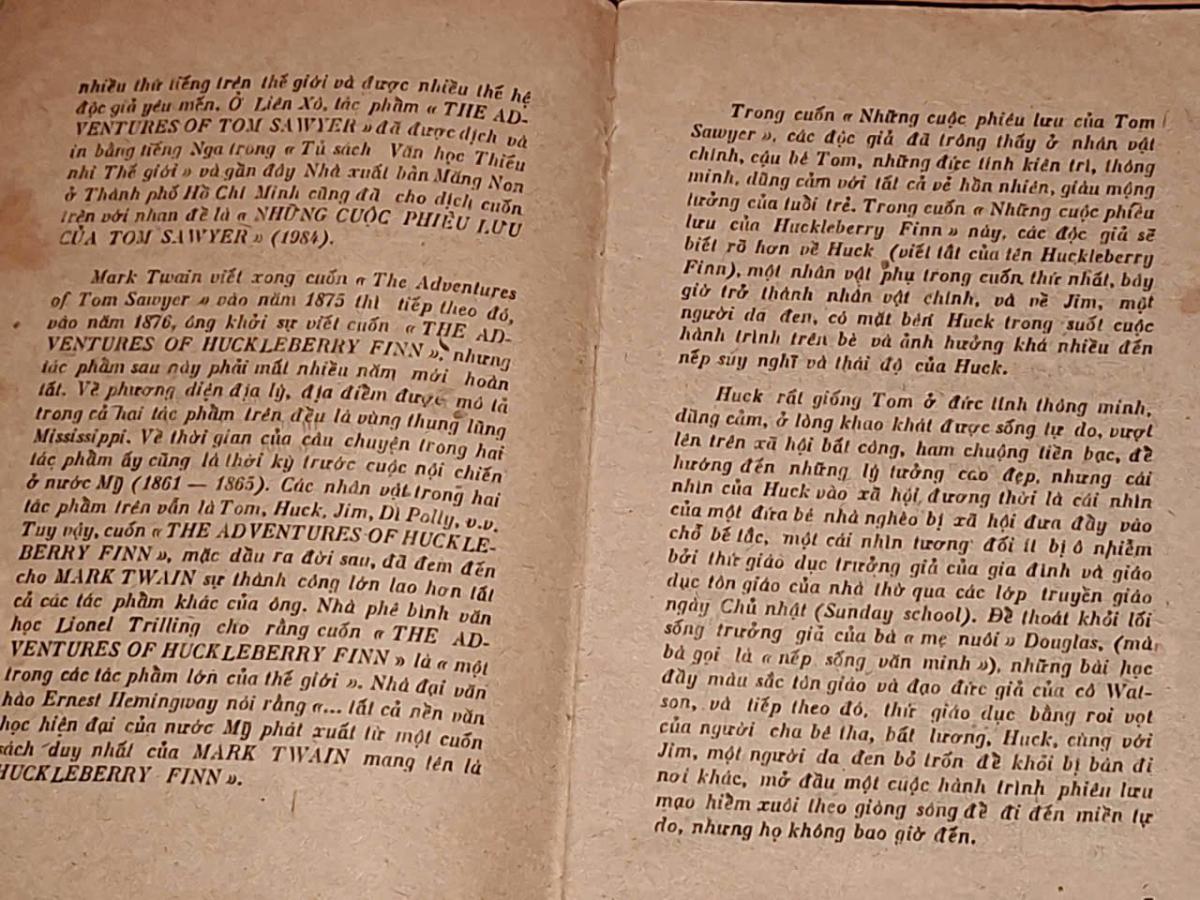 nhiều thứ tiếng trên thế giới và được nhiều thế hệ
độc giả yêu mến. Ở Liên Xô, tác phẩm « THE AD-
VENTURES OF TOM SAWYER » đã được dịch và
in bằng tiếng Nga trong « Tủ sách Văn học Thiếu
nhi Thế giới » và gần đây Nhà xuất bản Măng Non
ở Thành phố Hồ Chí Minh cũng đã cho dịch cuốn
trên với nhan đề là « NHỮNG CUỘC PHIÊU LƯU
CỦA TOM SAWYER » (1984).
Mark Twain viết xong cuốn « The Adventures
of Tom Sawyer » vào năm 1875 thì tiếp theo đó,
vào năm 1876, ông khởi sự viết cuốn « THE AD-
VENTURES OF HUCKLEBERRY FINN », nhưng
tác phẩm sau này phải mất nhiều năm mới hoàn
tất. Về phương diện địa lý, địa điểm được mô tả
trong cả hai tác phẩm trên đều là vùng thung lũng
Mississippi. Về thời gian của câu chuyện trong hai
tác phẩm ấy cũng là thời kỳ trước cuộc nội chiến
ở nước Mỹ (1861 — 1865). Các nhân vật trong hai
tác phẩm trên vẫn là Tom, Huck, Jim, Dì Polly, v.v.
Tuy vậy, cuốn « THE ADVENTURES OF HUCKLE-
BERRY FINN », mặc dầu ra đời sau, đã đem đến
cho MARK TWAIN sự thành công lớn lao hơn tất
cả các tác phẩm khác của ông. Nhà phê bình văn
học Lionel Trilling cho rằng cuốn « THE AD-
VENTURES OF HUCKLEBERRY FINN » là « một
trong các tác phẩm lớn của thế giới ». Nhà đại văn
hào Ernest Hemingway nói rằng «... tất cả nền văn
học hiện đại của nước Mỹ phát xuất từ một cuốn
sách duy nhất của MARK TWAIN mang tên là
HUCKLEBERRY FINN ».
Trong cuốn « Những cuộc phiêu lưu của Tom
Sawyer », các độc giả đã trông thấy ở nhân vật
chính, cậu bé Tom, những đức tính kiên trì, thông
minh, dũng cảm với tất cả vẻ hồn nhiên, giàu mộng
tưởng của tuổi trẻ. Trong cuốn « Những cuộc phiêu
lưu của Huckleberry Finn » này, các độc giả sẽ
biết rõ hơn về Huck (viết tắt của tên Huckleberry
Finn), một nhân vật phụ trong cuốn thứ nhất, bây
giờ trở thành nhân vật chính, và về Jim, một
người da đen, có mặt bên Huck trong suốt cuộc
hành trình trên bè và ảnh hưởng khá nhiều đến
nếp suy nghĩ và thái độ của Huck.
Huck rất giống Tom ở đức tính thông minh,
dũng cảm, ở lòng khao khát được sống tự do, vượt
lên trên xã hội bất công, ham chuộng tiền bạc, để
hướng đến những lý tưởng cao đẹp, nhưng cái
nhìn của Huck vào xã hội đương thời là cái nhìn
của một đứa bé nhà nghèo bị xã hội đưa đẩy vào
chỗ bế tắc, một cái nhìn tương đối ít bị ô nhiễm
bởi thứ giáo dục trưởng giả của gia đình và giáo
dục tôn giáo của nhà thờ qua các lớp truyền giáo
ngày Chủ nhật (Sunday school). Để thoát khỏi lối
sống trưởng giả của bà « mẹ nuôi » Douglas, (mà
bà gọi là « nếp sống văn minh »), những bài học
đầy màu sắc tôn giáo và đạo đức giả của cô Wat-
son, và tiếp theo đó, thứ giáo dục bằng roi vọt
của người cha bê tha, bất lương, Huck, cùng với
Jim, một người da đen bỏ trốn để khỏi bị bán đi
nơi khác, mở đầu một cuộc hành trình phiêu lưu
mạo hiểm xuôi theo giòng sông để đi đến miền tự
do, nhưng họ không bao giờ đến.